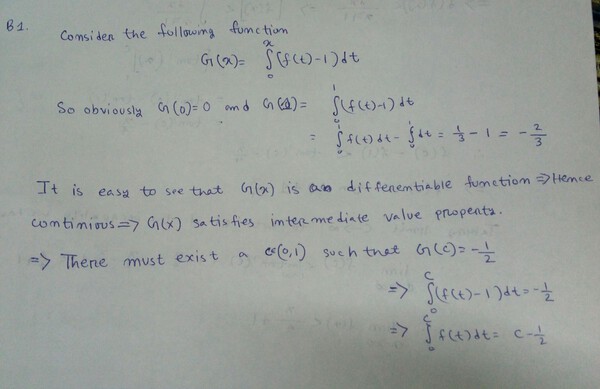 B1. Consider the following function
G(x) = ∫₀ˣ (f(t)-1) dt
So obviously G(0)=0 and G(1) = ∫₀¹ (f(t)-1) dt
= ∫₀¹ f(t) dt - ∫₀¹ dt = 1/3 - 1 = -2/3
It is easy to see that G(x) is differentiable function ⇒ Hence
continious ⇒ G(x) satisfies intermediate value property.
⇒ There must exist a c∈(0,1) such that G(c) = -1/2
⇒ ∫₀ᶜ (f(t)-1) dt = -1/2
⇒ ∫₀ᶜ f(t) dt = c - 1/2